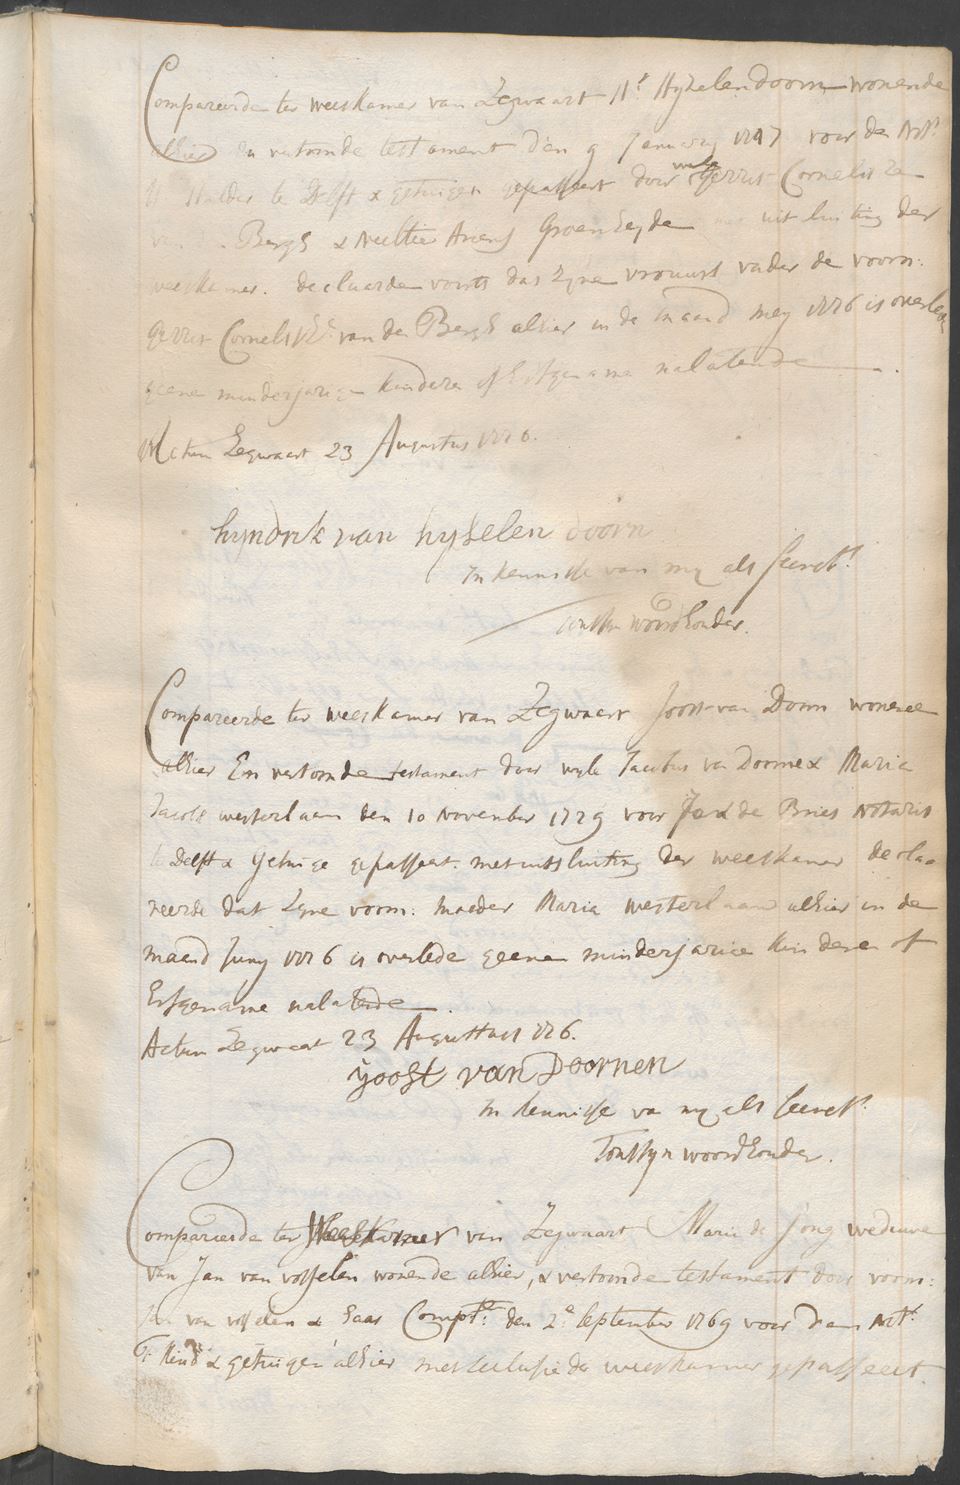 Compareerde ter weeskamer van Zegwaart Hk Hyselendoorn wonende
alhier En vertoonde testament den 9 January 1747 voor de Nots
te Delft & getuigen gepasseert door wyle Gerrit Cornelisze
van Bergh & Neeltie Ariens Groenheyde met uitsluiting der
weeskamer. declaarde voorts dat zyne vrouws vader de voorn:
Gerrit Cornelisze van den Bergh alhier in de maand mey 1776 is overleden
geene minderjarigen kinderen of Erfgename nalatende
Actum Zegwaart 23 Augustus 1776.
hyndrik van hyselen doorn
In kennisse van my als secrets
Toussyn Woordhouder.
Compareerde ter weeskamer van Zegwaart Joost van Doorn wonende
alhier En vertoonde testament door wyle Jacobus van Doorne & Maria
Jacobs westerlaan den 10 November 1729 voor de Bries Notaris
te Delft & getuige gepasseert. met uitsluiting der weeskamer decla=
reerde dat zyne voorn: moeder Maria westerlaan alhier in de
maand Juny 1776 is overlede geene minderjarice kinderen of
Erfgename nalatende
Actum Zegwaart 23 Augustus 1776.
yoost van Doornen
In kennisse va my als secrets.
Toussyn woordhouder.
Compareerde ter Weeskamer van Zegwaart Maria de Jong weduwe
van Jan van vosselen wonende alhier, & vertoonde testament door voorn:
Jan van vosselen & haar Compte: den 2e September 1769 voor den Nots
G: Kind & getuigen alhier met seclusie der weeskamer gepasseert.